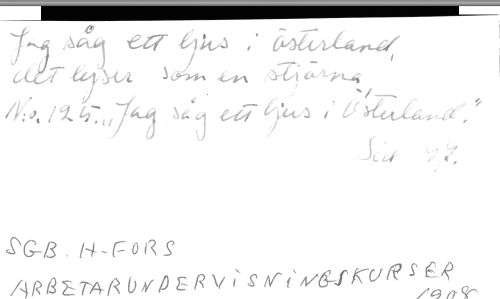 Jag såg ett ljus i Österland,
det lyser som en stjärna,
N:o. 125. „Jag såg ett ljus i Österland."
Sid.
SGB. H-FORS
ARBETARUNDERVISNINGSKURSER
1908